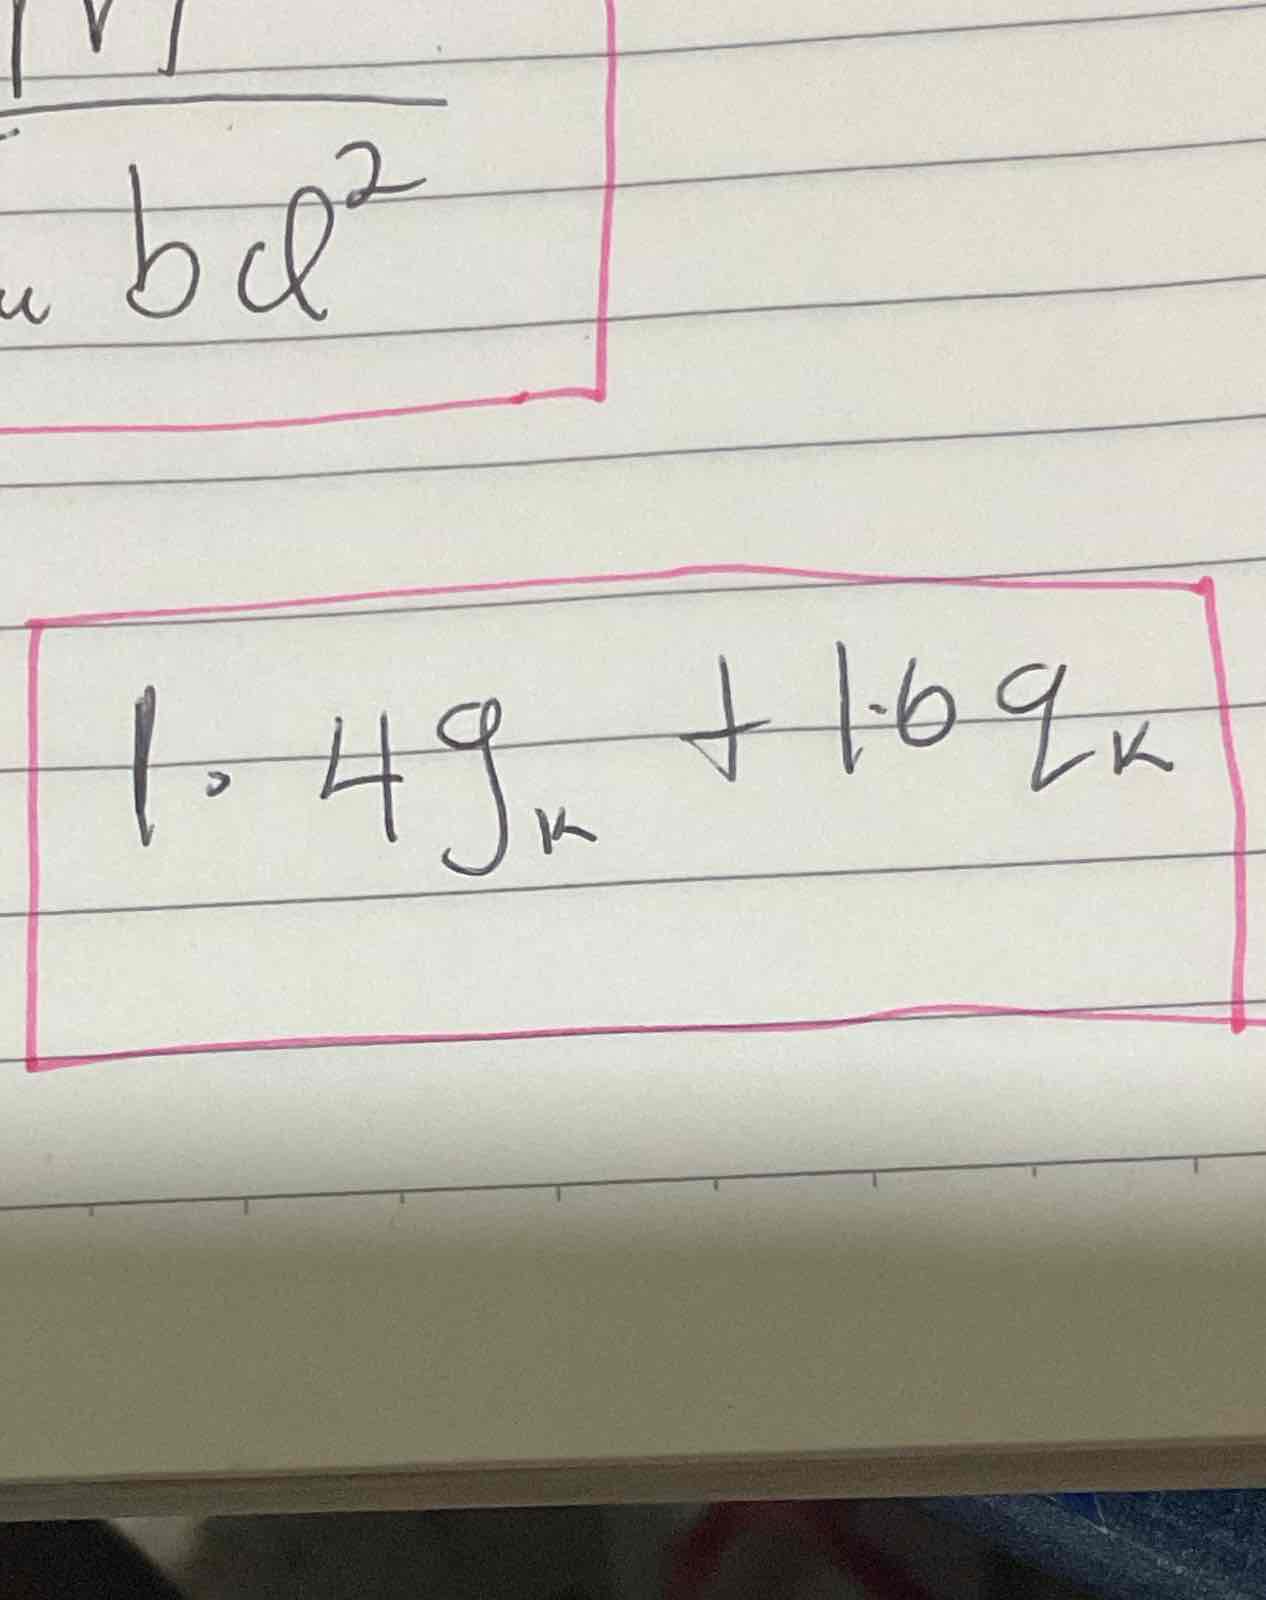 M
bd²
1.4gₖ + 1.6qₖ